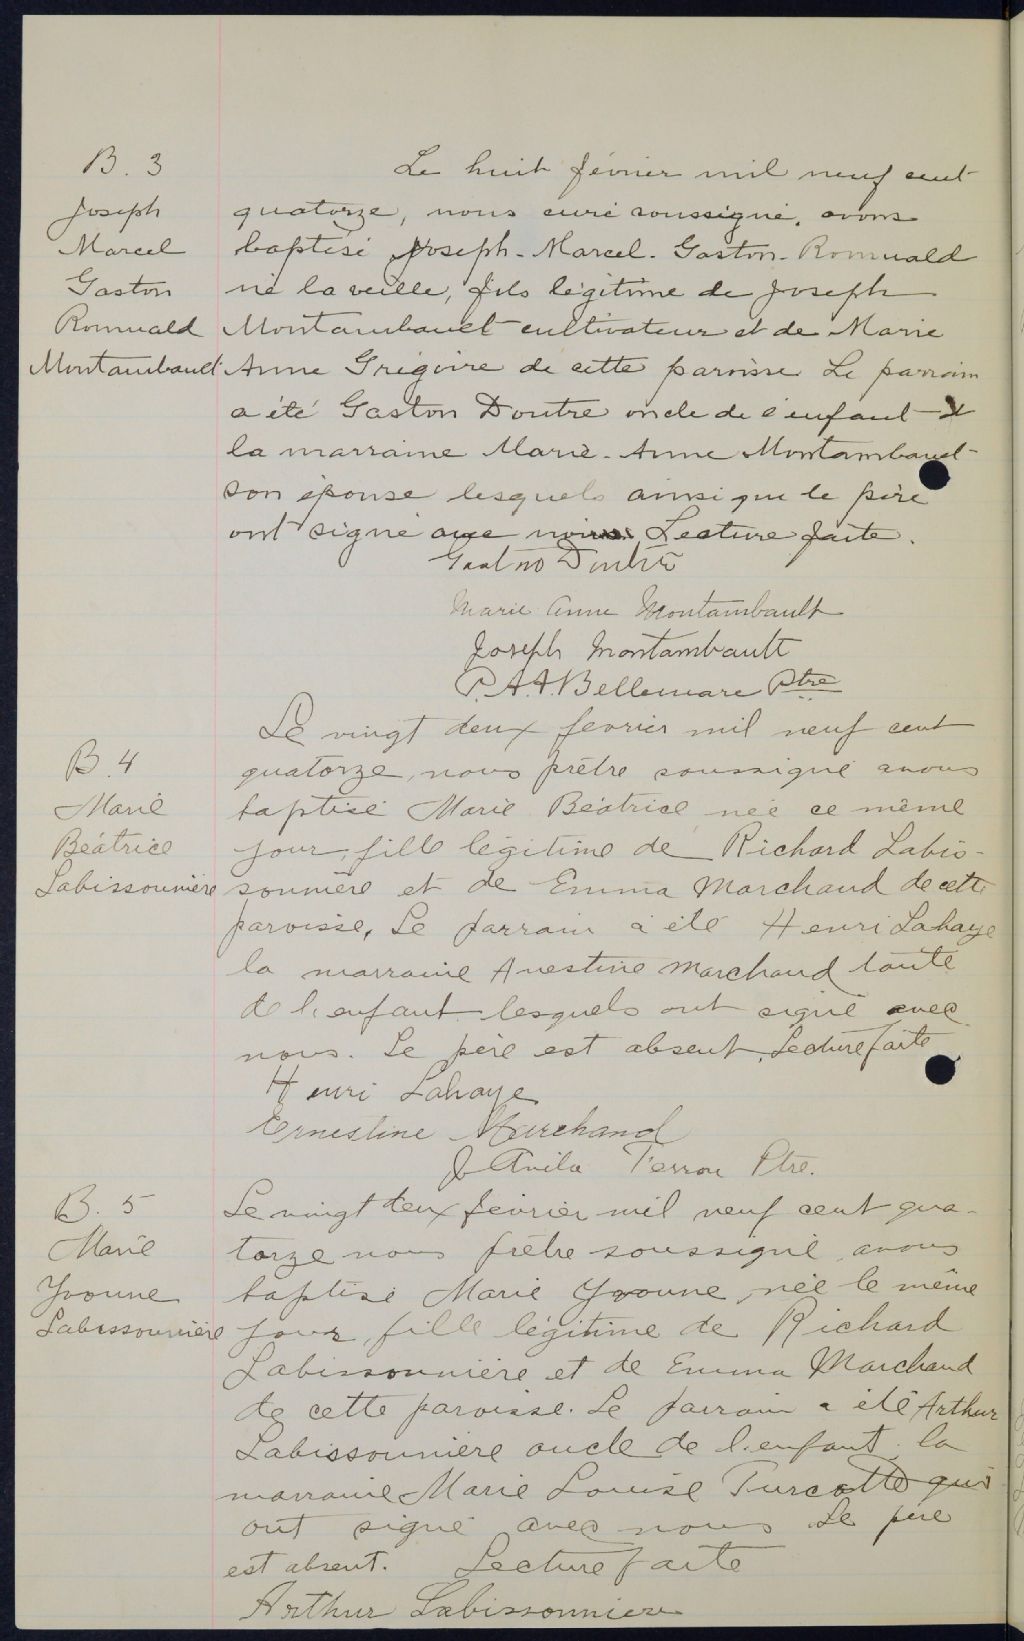 B. 3
Joseph
Marcel
Gaston
Romuald
Montambault
Le huit février mil neuf cent
quatorze, nous curé soussigné, avons
baptisé Joseph-Marcel-Gaston-Romuald
né la veille, fils légitime de Joseph
Montambault cultivateur et de Marie
Anne Grégoire de cette paroisse Le parrain
a été Gaston Doutre oncle de l'enfant &
la marraine Marie-Anne Montambault
son épouse lesquels ainsi que le père
ont signé avec nous. Lecture faite.
Gaston Doutre
Marie Anne Montambault
Joseph Montambault
P.A.A. Bellemare Ptre
B. 4
Marie
Béatrice
Labissonnière
Le vingt deux fevrier mil neuf cent
quatorze, nous prêtre soussigné avons
baptisé Marie Béatrice née ce même
jour, fille légitime de Richard Labis-
sonnière et de Emma Marchand de cette
paroisse, Le parrain a été Henri Lahaye
la marraine Anestine Marchand tante
de l'enfant lesquels ont signé avec
nous. Le père est absent. Lecture faite
Henri Lahaye
Ernestine Marchand
J Avila Ferron Ptre.
B. 5
Marie
Yvonne
Labissonnière
Le vingt deux février mil neuf cent qua-
torze nous prêtre soussigné avons
baptisé Marie Yvonne, née le même
jour, fille légitime de Richard
Labissonnière et de Emma Marchand
de cette paroisse. Le parrain a été Arthur
Labissonnière oncle de l'enfant, la
marraine Marie Louise Turcotte qui
ont signé avec nous Le père
est absent. Lecture faite
Arthur Labissonniere